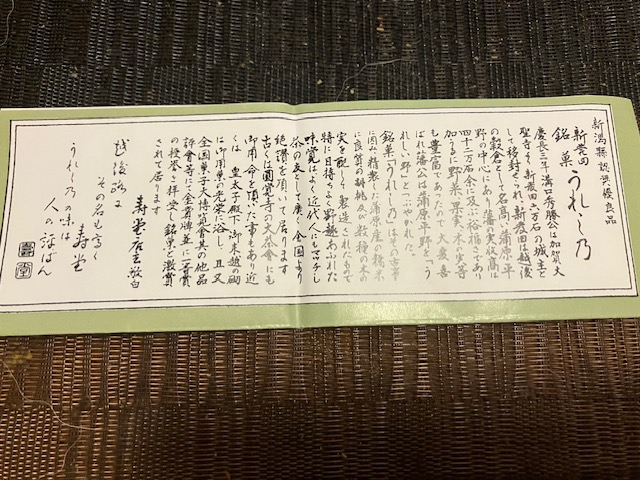 新潟縣認奨優良品
新発田
銘菓 うれし乃
慶長三年溝口秀勝公は加賀大
聖寺より新発田六万石の城主と
して移封さられ新発田は越後
の穀倉として名高い蒲原平
野の中心にあり藩の実収高は
四十二万石余に及ぶ裕福であり
加うるに野菜果実木の実等
も豊富であったので大変喜
ばれ藩公は蒲原平野を「う
れしい野」とつぶやかれた。
銘菓「うれし乃」はその古事
に因み精製した蒲原産の糯米
に良質の胡桃及び数種の木の
実を配して製造されたもので
特に日持ちよく野趣あふれた
味覚はよく近代人にもマッチし
茶の友として廣く全國より
絶讃を頂いて居ります
出ては圓覚寺の大茶會にも
御用命を頂いた事もあり近
くは 皇太子殿下御来越の砌
には御用菓の光栄に浴し且又
全国菓子大博覧會其の他品
評會等にて金賞牌並に一等賞
の授誉を拝受し銘菓と激賞
されて居ります
寿堂店主敬白
越後路に
その名も高く
寿堂
うれし乃の味は
人の謎ばん
壽堂